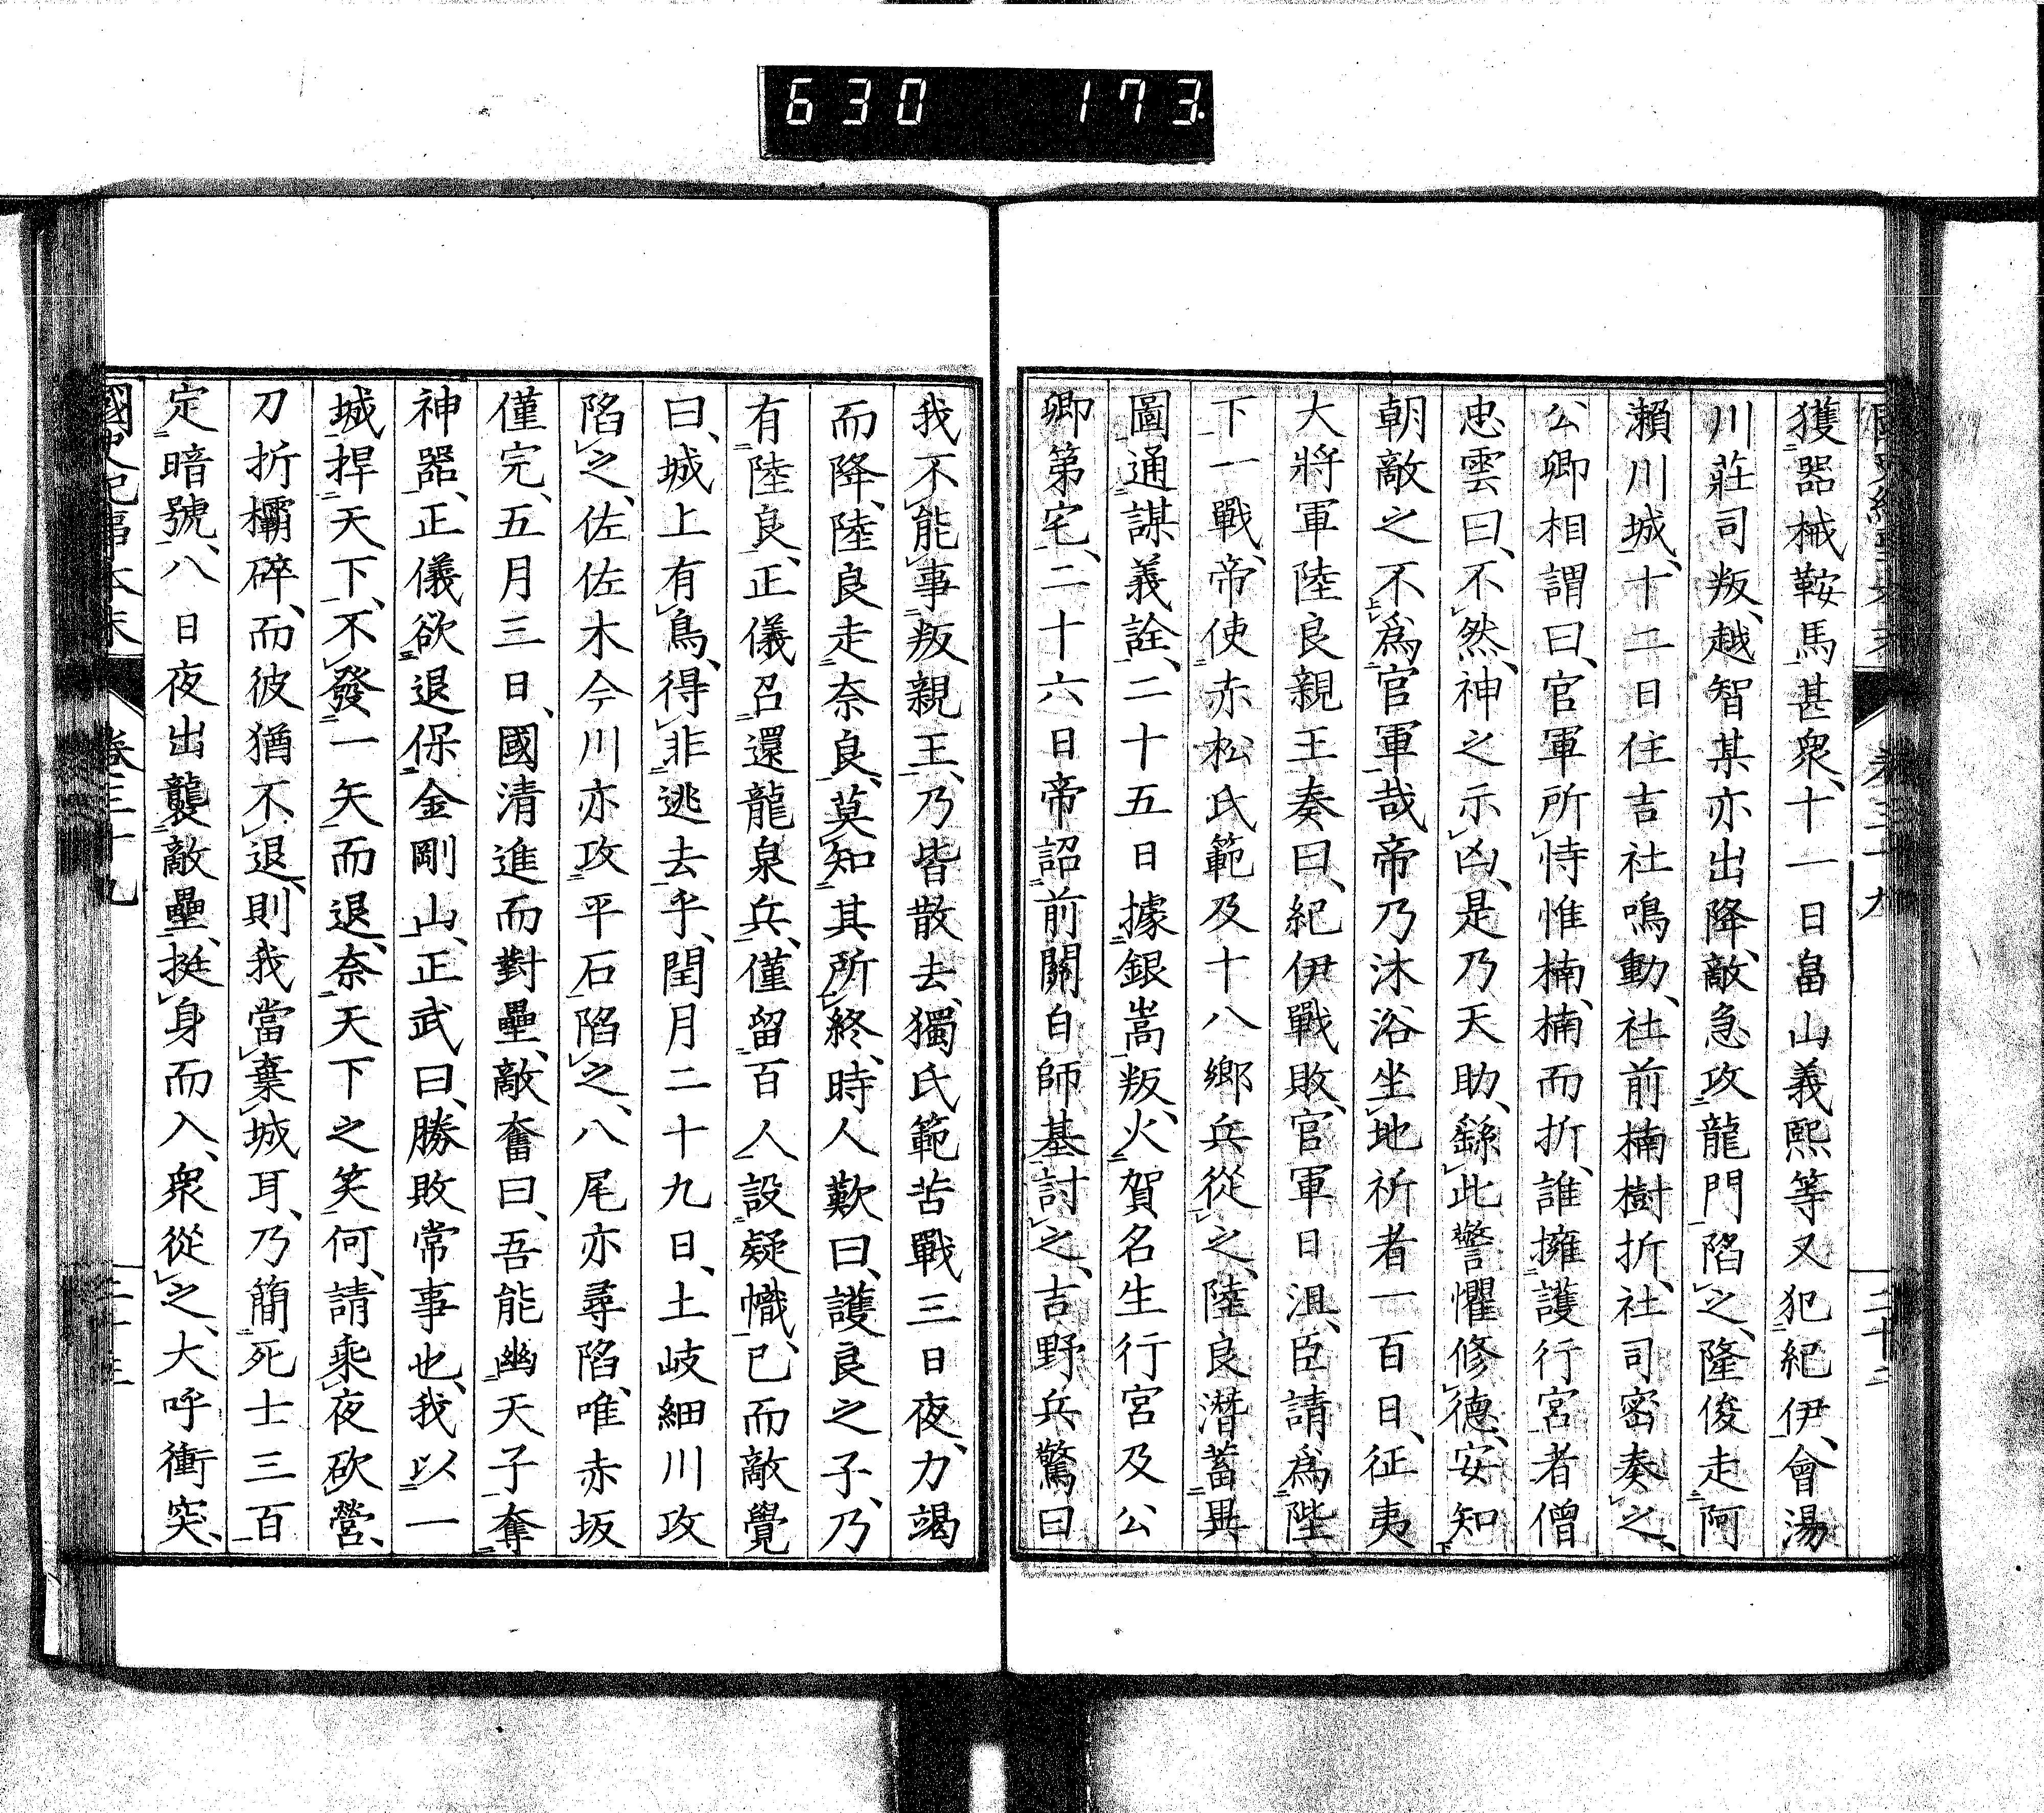 630 173
獲器械鞍馬甚衆、十一日畠山義熙等又犯紀伊、會湯
川莊司叛、越智某亦出降、敵急攻龍門陷之、隆俊走阿
瀨川城、十二日住吉社鳴動、社前楠樹折、社司密奏之、
公卿相謂曰、官軍所恃惟楠、楠而折、誰擁護行宮者僧
忠雲曰、不然、神之示凶、是乃天助、繇此警懼修德、安知
朝敵之不爲官軍哉帝乃沐浴坐地祈者一百日、征夷
大將軍陸良親王奏曰、紀伊戰敗、官軍日沮、臣請爲陛
下一戰、帝使赤松氏範及十八鄉兵從之、陸良潛蓄異
圖通謀義詮、二十五日據銀嵩叛、火賀名生行宮及公
卿第宅、二十六日帝詔前關白師基討之、吉野兵驚曰
我不能事叛親王、乃皆散去、獨氏範苦戰三日夜、力竭
而降、陸良走奈良、莫知其所終、時人歎曰、護良之子、乃
有陸良、正儀召還龍泉兵、僅留百人設疑幟、已而敵覺
曰、城上有鳥、得非逃去乎、閏月二十九日、土岐細川攻
陷之、佐佐木今川亦攻平石陷之、八尾亦尋陷、唯赤坂
僅完、五月三日、國清進而對壘、敵奮曰、吾能幽天子奪
神器、正儀欲退保金剛山、正武曰、勝敗常事也、我以一
城捍天下、不發一矢而退、奈天下之笑何、請乘夜砍營、
刀折欛碎、而彼猶不退、則我當棄城耳、乃簡死士三百
定暗號、八日夜出襲敵壘、挺身而入、衆從之、大呼衝突、
國史紀事本末 卷三十九